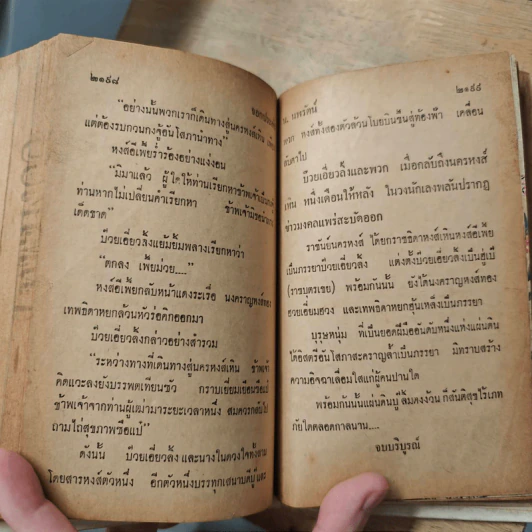 ๒๑๙๘
"อย่างนั้นพวกเราก็เดินทางสู่นครหงส์เหิน
แต่ต้องรบกวนกงจู้อั้นโสภานำทาง"
หงส์อีเพียร่ำร้องอย่างแง่งอน
"มิมาแล้ว ผู้ใดให้ท่านเรียกหาข้าพเจ้าเป็น
ท่านหากไม่เปลี่ยนคำเรียกหา ข้าพเจ้า
เด็ดขาด"
บ๊วยเอี่ยวลั้งแย้มยิ้มพลางเรียกหาว่า
"ตกลง เพ้ยม่วย...."
หงส์อีเพียกลับหน้าแดงระเรื่อ นงคราญหงส์ทอง
เทพธิดาหยกล้วนหัวร่อคิกออกมา
บ๊วยเอี่ยวลั้งกล่าวอย่างสำรวม
"ระหว่างทางที่เดินทางสู่นครหงส์เหิน ข้าพเจ้า
คิดแวะลงยังบรรพตเทียนซัว กราบเยี่ยมเยือน
ข้าพเจ้าจากท่านผู้เฒ่ามาระยะเวลาหนึ่ง สมควรกลับไป
ถามไถ่สุขภาพซือแป๋"
ดังนั้น บ๊วยเอี่ยวลั้งและนางในดวงใจทั้งสาม
โดยสารหงส์ตัวหนึ่ง อีกตัวหนึ่งบรรทุก
๒๑๙๙
น. นพรัตน์
หงส์ทั้งสองตัวล้วนโบยบินขึ้นสู่ท้องฟ้า เคลื่อน
ลับตาไป
บ๊วยเอี่ยวลั้งและพวก เมื่อกลับถึงนครหงส์
เหิน หนึ่งเดือนให้หลัง ในวงนักเลงพลันปรากฏ
ข่าวมงคลแพร่สะบัดออก
ราชันย์นครหงส์ โดยกราชธิดาหงส์เหินหงส์อีเพีย
เป็นภรรยาบ๊วยเอี่ยวลั้ง แต่งตั้งบ๊วยเอี่ยวลั้งเป็นฮู่เบ๊
(ราชบุตรเขย) พร้อมกันนั้น ยังได้นงคราญหงส์ทอง
ฮวยเอี่ยมฮวง และเทพธิดาหยกฮุ้นเหล็งเป็นภรรยา
บุรุษหนุ่ม ที่เป็นยอดฝีมืออันดับหนึ่งแห่งแผ่นดิน
ได้อิสตรีอันโสภาสะคราญล้ำเป็นภรรยา มิทราบสร้าง
ความอิจฉาเลื่อมใสแก่ผู้คนปานใด
พร้อมกันนั้นแผ่นดินบู๊ลิ้มดงง้วน ก็สันติสุขไร้เภท
ภัยไดตลอดกาลนาน....
จบบริบูรณ์